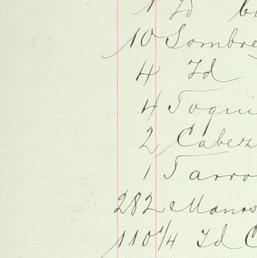 1 Id
10 Sombre
4 Id
4 Toqui
2 Cabez
1 Tarro
282 Manos
110 1/4 Id C